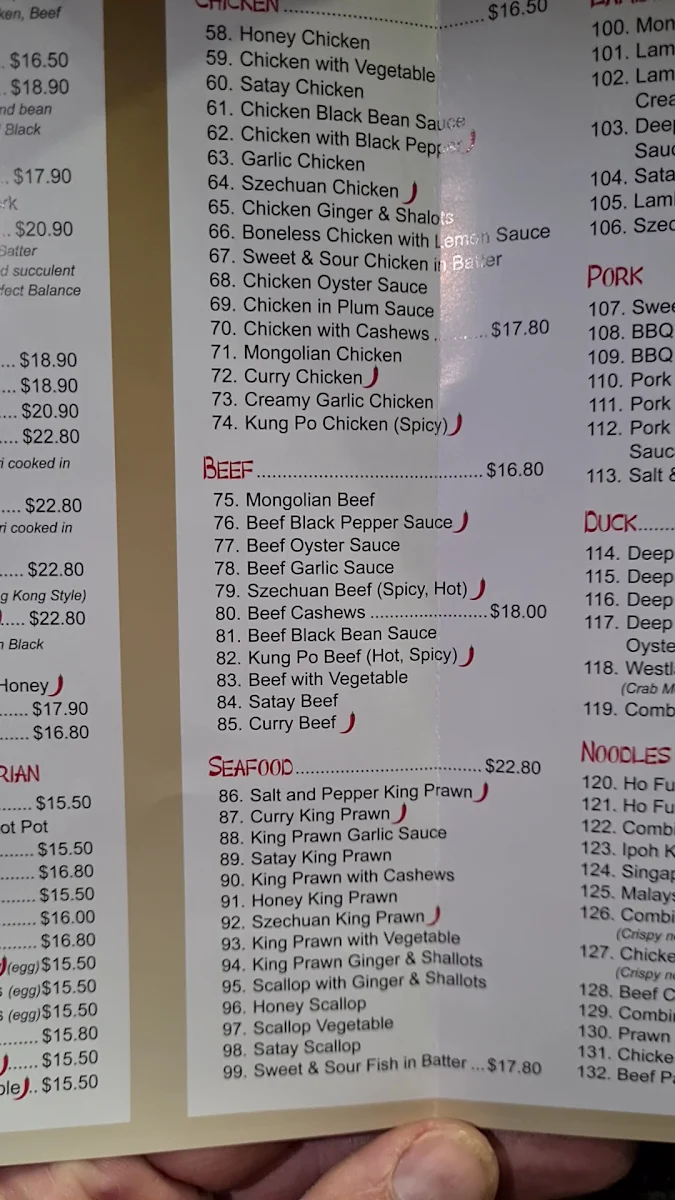 ken, Beef
$16.50
$18.90
nd bean
Black
.. $17.90
rk
.. $20.90
Batter
d succulent
fect Balance
.... $18.90
.... $18.90
.... $20.90
.... $22.80
i cooked in
.... $22.80
ri cooked in
..... $22.80
g Kong Style)
..... $22.80
n Black
Honey
...... $17.90
...... $16.80
RIAN
....... $15.50
ot Pot
........ $15.50
........ $16.80
........ $15.50
........ $16.00
........ $16.80
(egg) $15.50
s (egg) $15.50
s (egg) $15.50
........ $15.80
...... $15.50
ble .. $15.50
CHICKEN ........................ $16.50
58. Honey Chicken
59. Chicken with Vegetable
60. Satay Chicken
61. Chicken Black Bean Sauce
62. Chicken with Black Pepper
63. Garlic Chicken
64. Szechuan Chicken
65. Chicken Ginger & Shalots
66. Boneless Chicken with Lemon Sauce
67. Sweet & Sour Chicken in Batter
68. Chicken Oyster Sauce
69. Chicken in Plum Sauce
70. Chicken with Cashews .......... $17.80
71. Mongolian Chicken
72. Curry Chicken
73. Creamy Garlic Chicken
74. Kung Po Chicken (Spicy)
BEEF ........................ $16.80
75. Mongolian Beef
76. Beef Black Pepper Sauce
77. Beef Oyster Sauce
78. Beef Garlic Sauce
79. Szechuan Beef (Spicy, Hot)
80. Beef Cashews ........................ $18.00
81. Beef Black Bean Sauce
82. Kung Po Beef (Hot, Spicy)
83. Beef with Vegetable
84. Satay Beef
85. Curry Beef
SEAFOOD ........................ $22.80
86. Salt and Pepper King Prawn
87. Curry King Prawn
88. King Prawn Garlic Sauce
89. Satay King Prawn
90. King Prawn with Cashews
91. Honey King Prawn
92. Szechuan King Prawn
93. King Prawn with Vegetable
94. King Prawn Ginger & Shallots
95. Scallop with Ginger & Shallots
96. Honey Scallop
97. Scallop Vegetable
98. Satay Scallop
99. Sweet & Sour Fish in Batter ... $17.80
100. Mon
101. Lam
102. Lam
Crea
103. Deep
Sauc
104. Sata
105. Lam
106. Szec
PORK
107. Swee
108. BBQ
109. BBQ
110. Pork
111. Pork
112. Pork
Sauc
113. Salt &
DUCK.......
114. Deep
115. Deep
116. Deep
117. Deep
Oyste
118. Westl
(Crab M
119. Comb
NOODLES
120. Ho Fu
121. Ho Fu
122. Combi
123. Ipoh K
124. Singap
125. Malays
126. Combi
(Crispy n
127. Chicke
(Crispy n
128. Beef C
129. Combin
130. Prawn
131. Chicke
132. Beef Pa